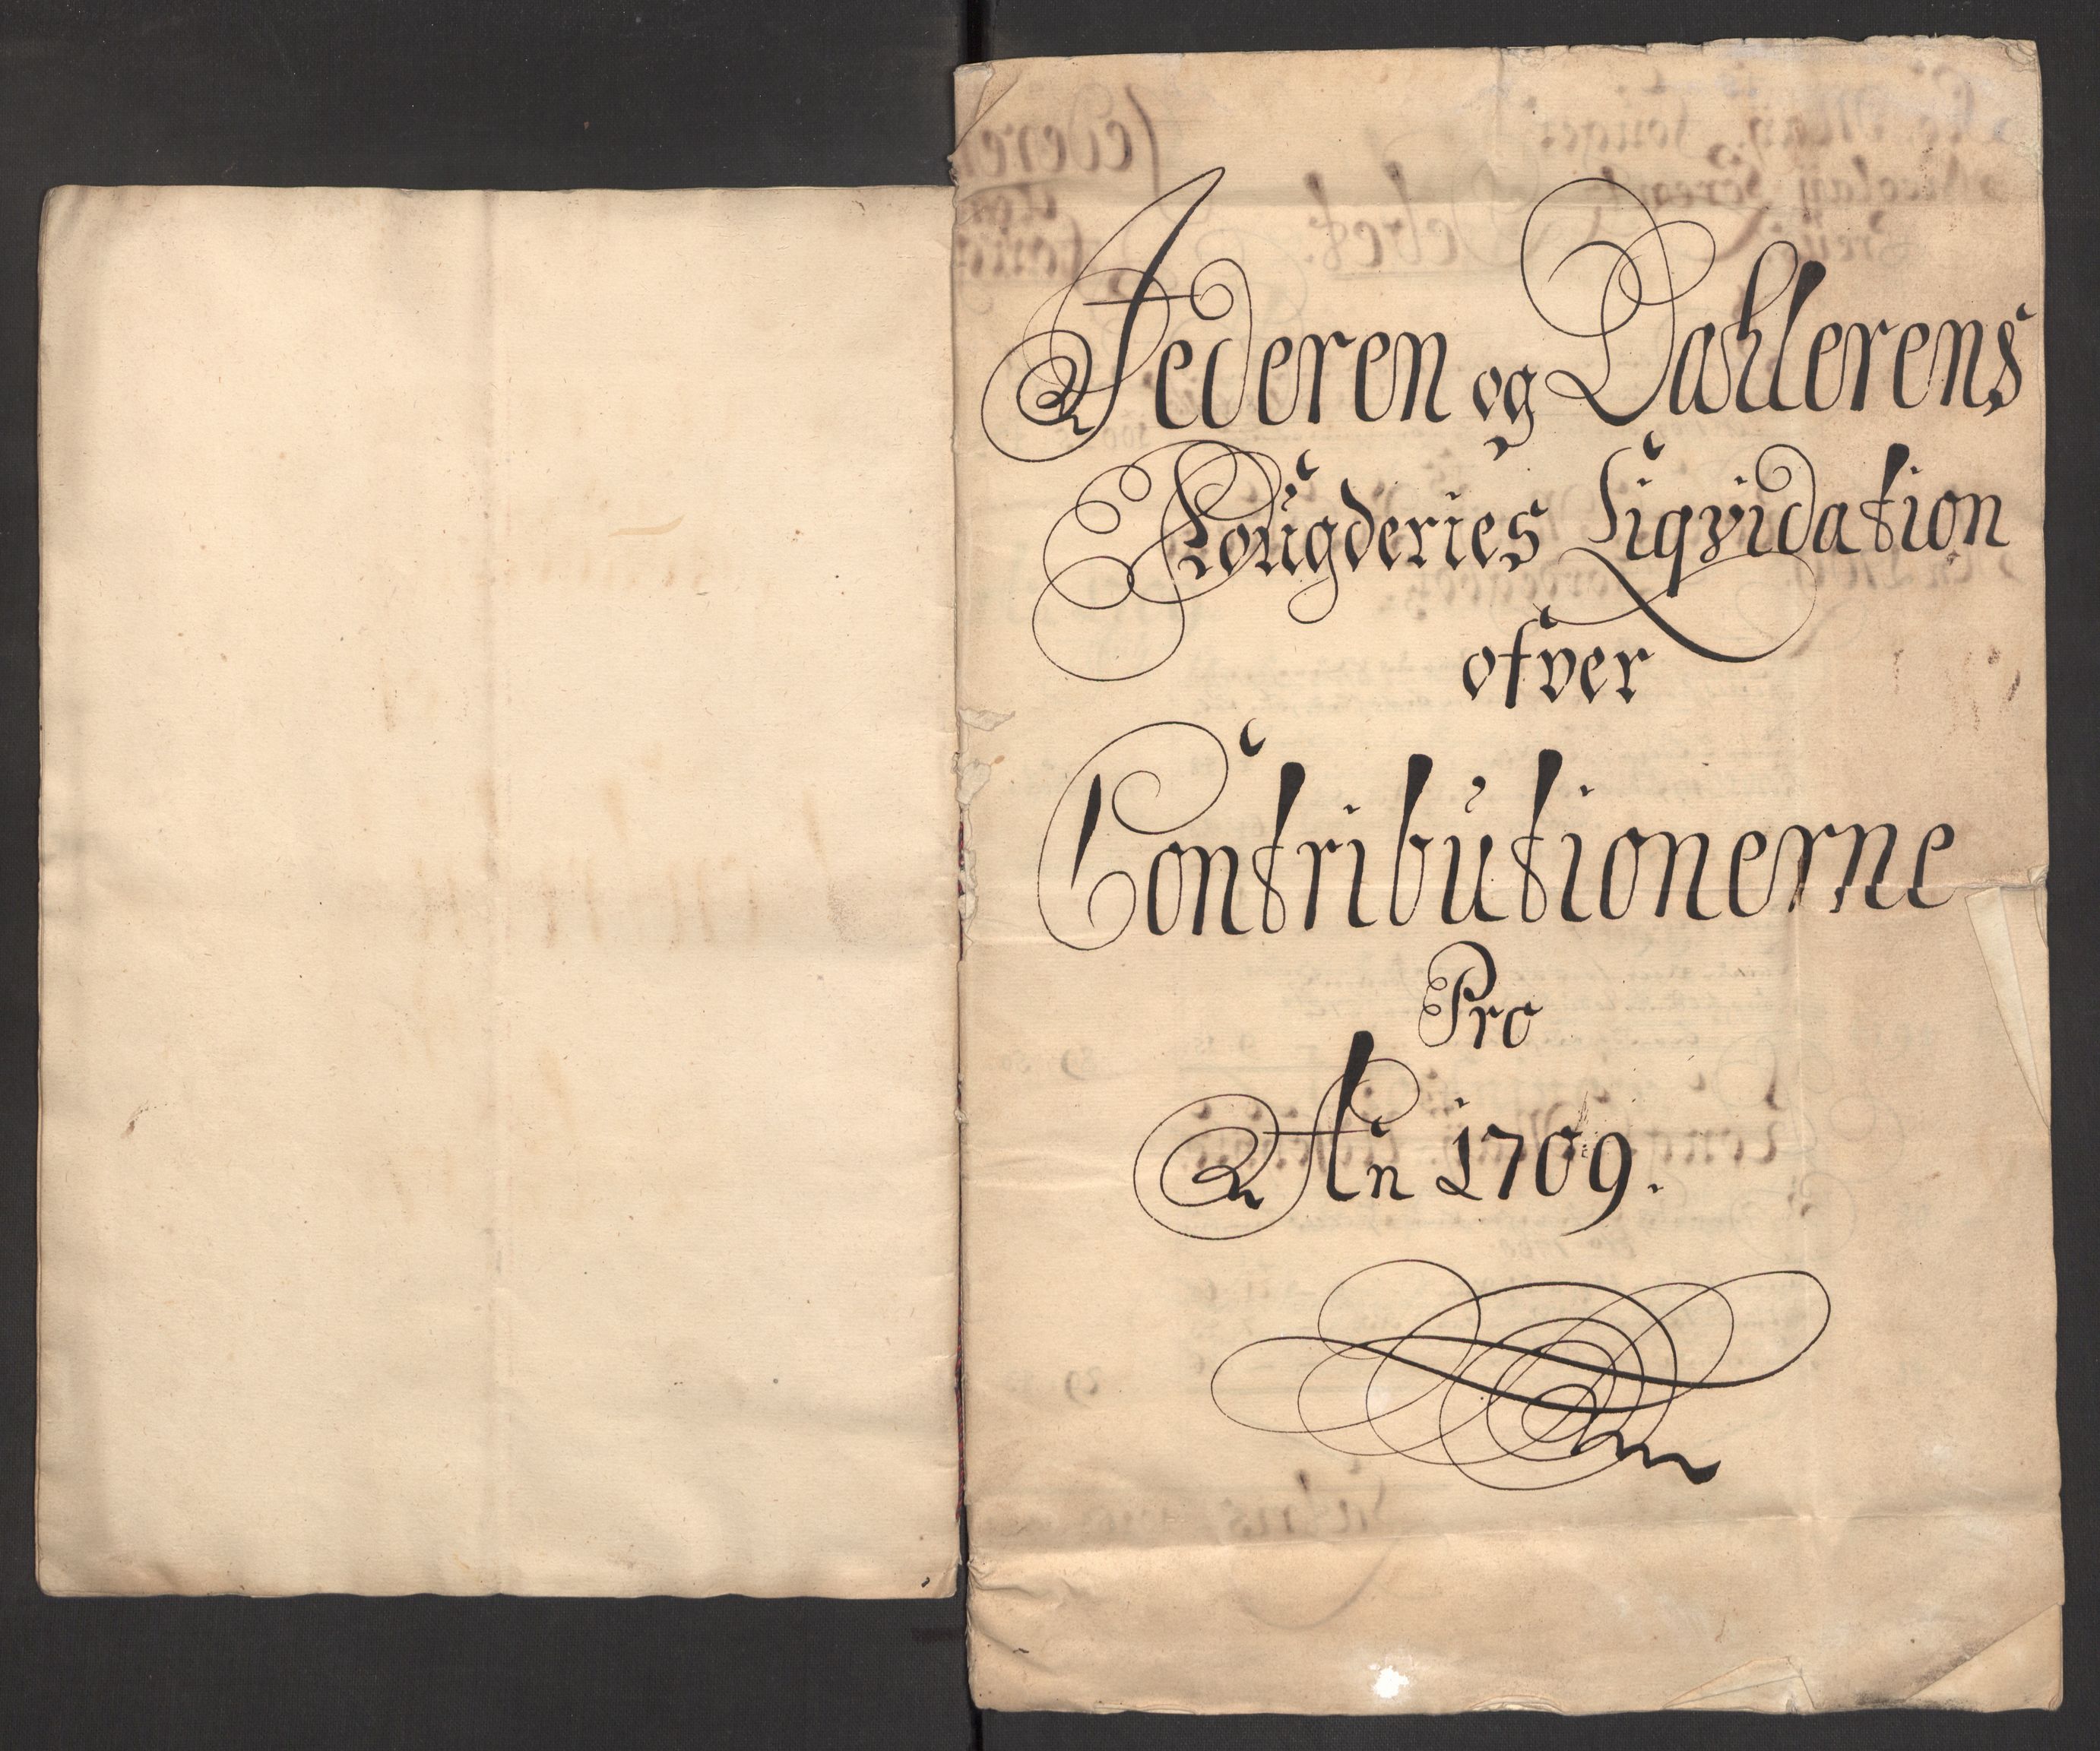 Jederen og Dahlerens
Fougderies Liqvidation
ofver
Contributionerne
Pro
An 1709.